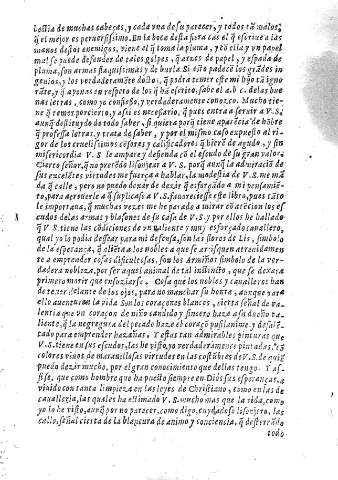 bestia de muchas cabeças, y cada vna de su parecer, y todos tã malos,
q̃ el mejor es peruersissimo. En la boca desta fiera cae el q̃ escriue a las
manos destos enemigos, viene el q̃ toma la pluma, y cõ ella y vn papel
mal se puede defender de tales golpes, q̃ armas de papel, y espada de
pluma, son armas flaquissimas y de burla. Si esto padecẽ los grãdes in
genios, y los verdaderamẽte doctos, q̃ podra temer este mi hijo tã igno
rãte, y q̃ apenas en respeto de los q̃ hã escrito, sabe el a.b.c. de las bue
nas letras, como yo confiesso, y verdaderamente conozco. Mucho tie
ne q̃ temer por cierto, y assi es necessario, q̃ pues entra a seruir a V.S.
aunq̃ destituydo de todo saber, si quiera porq̃ tiene aparẽcia de hõbre
q̃ professa letras, y trata de saber, y por el mismo caso expuesto al ri-
gor de los cruelissimos cẽsores y calificadores q̃ hiere de agudo, y sin
misericordia V.S. le ampare y defienda cõ el escudo de su gran valor.
Cierto señor, q̃ no pretẽdo lisonjear a V.S. porq̃ aunq̃ la admiracion de
sus excelẽtes virtudes me fuerça a hablar, la modestia de V.S. me mã
da q̃ calle, pero no puedo dexar de dezir q̃ esforçado a mi pensamiẽ-
to, para atreuerle a q̃ suplicasse a V.S. fauoreciesse este libro, pues tãto
le importaua, q̃ muchas vezes me he parado a mirar cõ atẽcion los es
cudos de las armas y blasones de su casa de V.S. y por ellos he hallado
q̃ V.S. tiene las cõdiciones de vn valiente y muy esforçado cauallero,
qual yo lo podia dessear para mi defensa, son las flores de Lis, simbolo
de la esperança, q̃ alienta a los nobles a que se arrisquen atreuidamen
te a emprender cosas dificultosas, son los Armiños simbolo de la ver
dadera nobleza, por ser aquel animal de tal instincto, que se dexarà
primero morir que ensuziarse. Cosa que los nobles y caualleros han
de tener delante de los ojos, para no manchar su honra, aunque para
ello auenturen la vida. Son los coraçones blancos, cierta señal de va-
lentia que vn coraçon de niño cãndido y sincero haze a su dueño va-
liente, q̃ la negregura del pecado haze el coraço pusilanime, y desalẽ
tado para emprender hazañas. Y estas tan admirables pinturas que
V.S. tiene en sus escudos, las he visto yo verdaderamente pintadas, cõ
colores viuos de marauillosas virtudes en las costũbres de V.S. de quiẽ
puedo dezir mucho, por el gran conocimiento que dellas tengo. Y as-
si se, que como hombre que ha puesto siempre en Dios sus esperanças, a
viuido con tanta limpieza en las leyes de Christiano, como en las de
caualleria, las quales ha estimado V.S. mucho mas que la vida, como
yo lo he visto, aunq̃ por no parecer, como digo, cuydadoso lisonjero, las
callo, señal cierta de la blancura de animo y conciencia, q̃ desterrãdo
todo